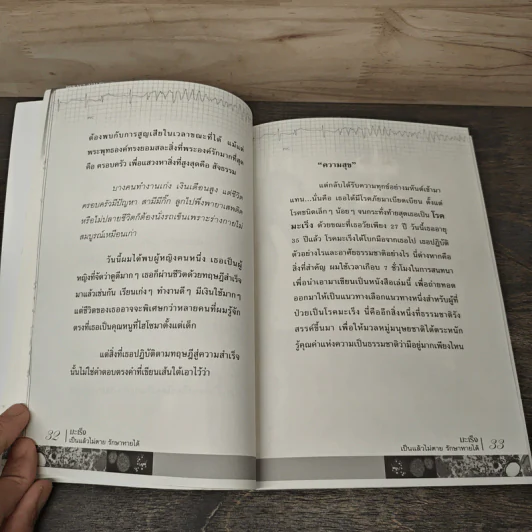 ต้องพบกับการสูญเสียในเวลาขณะที่ได้ แม้แต่
พระพุทธองค์ทรงยอมสละสิ่งที่พระองค์รักมากที่สุด
คือ ครอบครัว เพื่อแสวงหาสิ่งที่สูงสุดคือ สัจธรรม
บางคนทำงานเก่ง เงินเดือนสูง แต่ชีวิต
ครอบครัวมีปัญหา สามีมีกิ๊ก ลูกไปพึ่งพายาเสพติด
หรือไม่ปลายชีวิตก็ต้องนั่งรถเข็นเพราะร่างกายไม่
สมบูรณ์เหมือนเก่า
วันนี้ผมได้พบผู้หญิงคนหนึ่ง เธอเป็นผู้
หญิงที่จัดว่าดูดีมากๆ เธอก็ผ่านชีวิตด้วยทฤษฎีสำเร็จ
มาแล้วเช่นกัน เรียนเก่งๆ ทำงานดีๆ มีเงินใช้มากๆ
แต่ชีวิตของเธออาจจะพิเศษกว่าหลายคนที่ผมรู้จัก
ตรงที่เธอเป็นคุณหนูที่ไฮโซมาตั้งแต่เด็ก
แต่สิ่งที่เธอปฏิบัติตามทฤษฎีสู่ความสำเร็จ
นั้นไม่ใช่คำตอบตรงคำที่เขียนเส้นใต้เอาไว้ว่า
32 มะเร็ง
เป็นแล้วไม่ตาย รักษาหายได้
"ความสุข"
แต่กลับได้รับความทุกข์อย่างมหันต์เข้ามา
แทน...นั่นคือ เธอได้มีโรคภัยมาเบียดเบียน ตั้งแต่
โรคชนิดเล็กๆ น้อยๆ จนกระทั่งท้ายสุดเธอเป็น โรค
มะเร็ง ด้วยขณะที่เธอวัยเพียง 27 ปี วันนี้เธออายุ
35 ปีแล้ว โรคมะเร็งได้โบกมือลาจากเธอไป เธอปฏิบัติ
ตัวอย่างไรและอาศัยธรรมชาติอย่างไร นี่ต่างหากคือ
สิ่งที่สำคัญ ผมใช้เวลาเกือบ 7 ชั่วโมงในการสนทนา
เพื่อนำเอามาเขียนเป็นหนังสือเล่มนี้ เพื่อถ่ายทอด
ออกมาให้เป็นแนวทางเลือกแนวทางหนึ่งสำหรับผู้ที่
ป่วยเป็นโรคมะเร็ง นี่คืออีกสิ่งหนึ่งที่ธรรมชาติรัง
สรรค์ขึ้นมา เพื่อให้มวลหมู่มนุษยชาติได้ตระหนัก
รู้คุณค่าแห่งความเป็นธรรมชาติว่ามีอยู่มากเพียงไหน
มะเร็ง 33
เป็นแล้วไม่ตาย รักษาหายได้